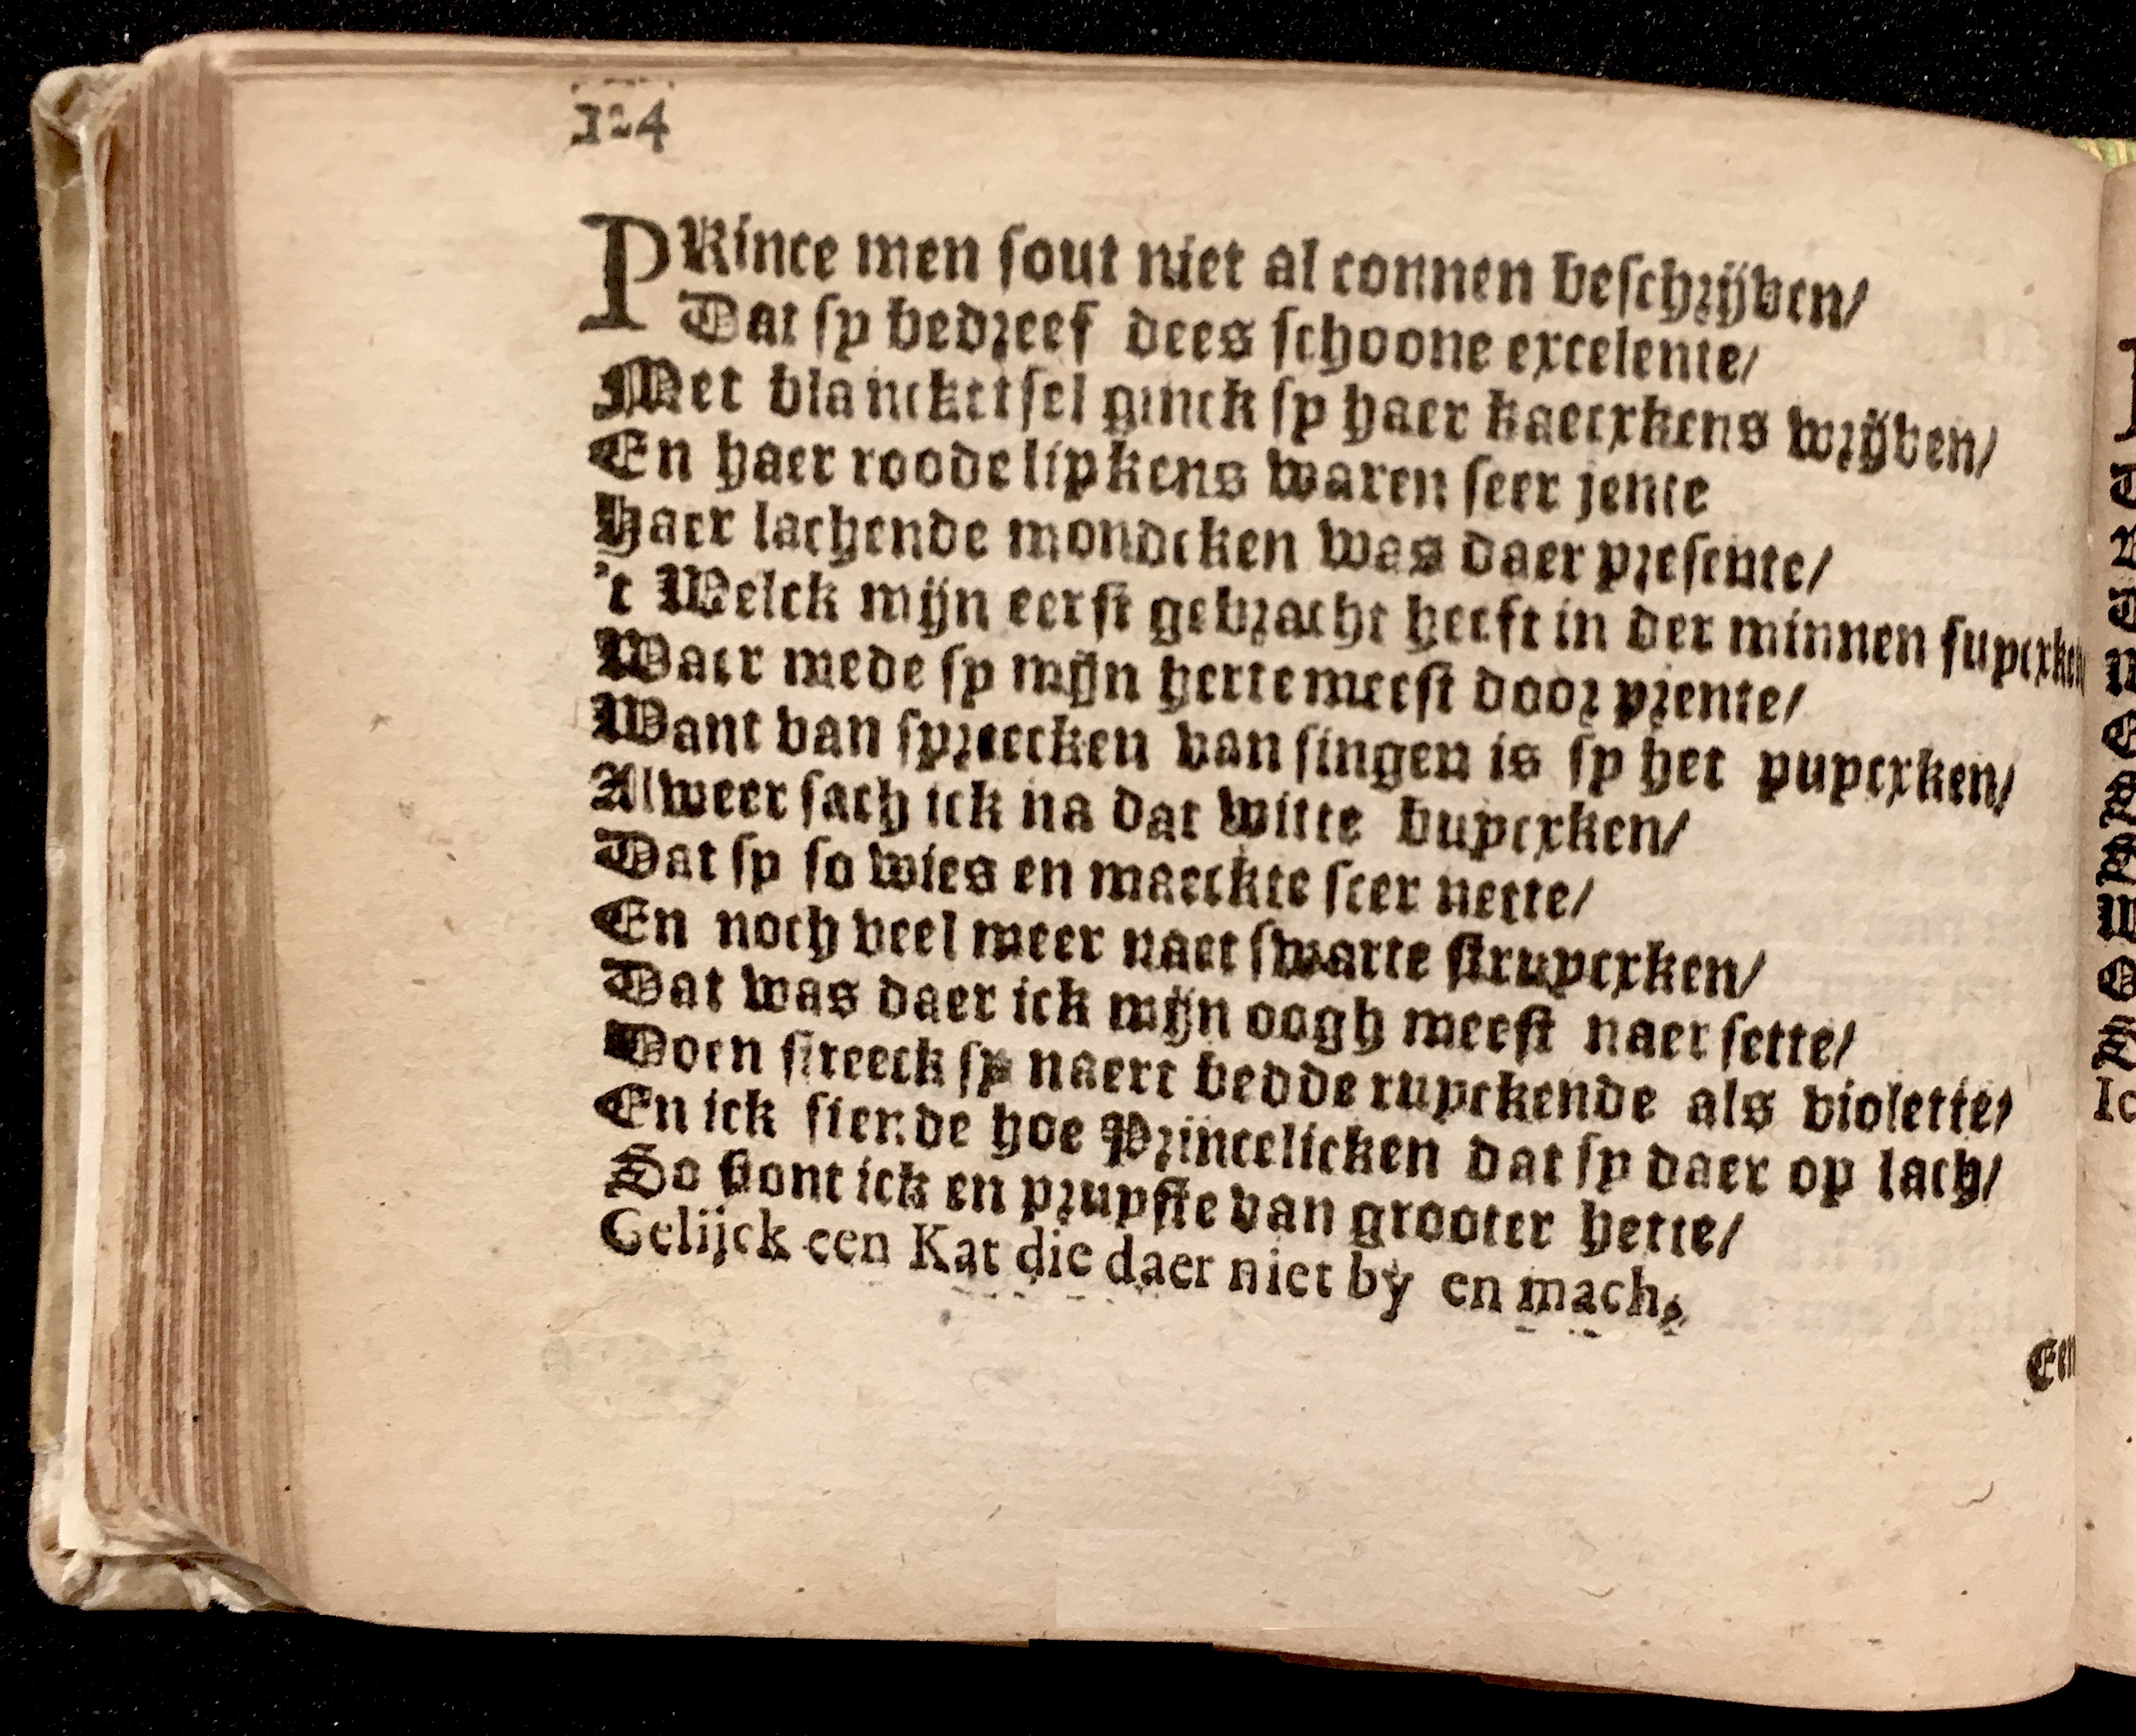 324
PRince men sout niet al connen beschrijven/
Dat sy bedreef dees schoone excelente/
Met blanckettsel ginck sy haer kaecxkens wrijven/
En haer roode lipkens waren seer jente
Haer lachende mondeken was daer presente/
't Welck mijn eerst gebracht heeft in der minnen
Waer mede sy mijn herte meest door prente/
Want van spreecken van singen is sy het puycxken/
Alweer sach ick na dat witte buycxken/
Dat sy so wies en maeckte seer nette/
En noch veel meer naet swarte struycxken/
Dat was daer ick mijn oogh meest naer sette/
Doen streeck sy naert bedde ruyckende als violette/
En ick siende hoe Princelicken dat sy daer op lach/
So stont ick en pruyste van grooter hette/
Gelijck een Kat die daer niet by en mach,
Een